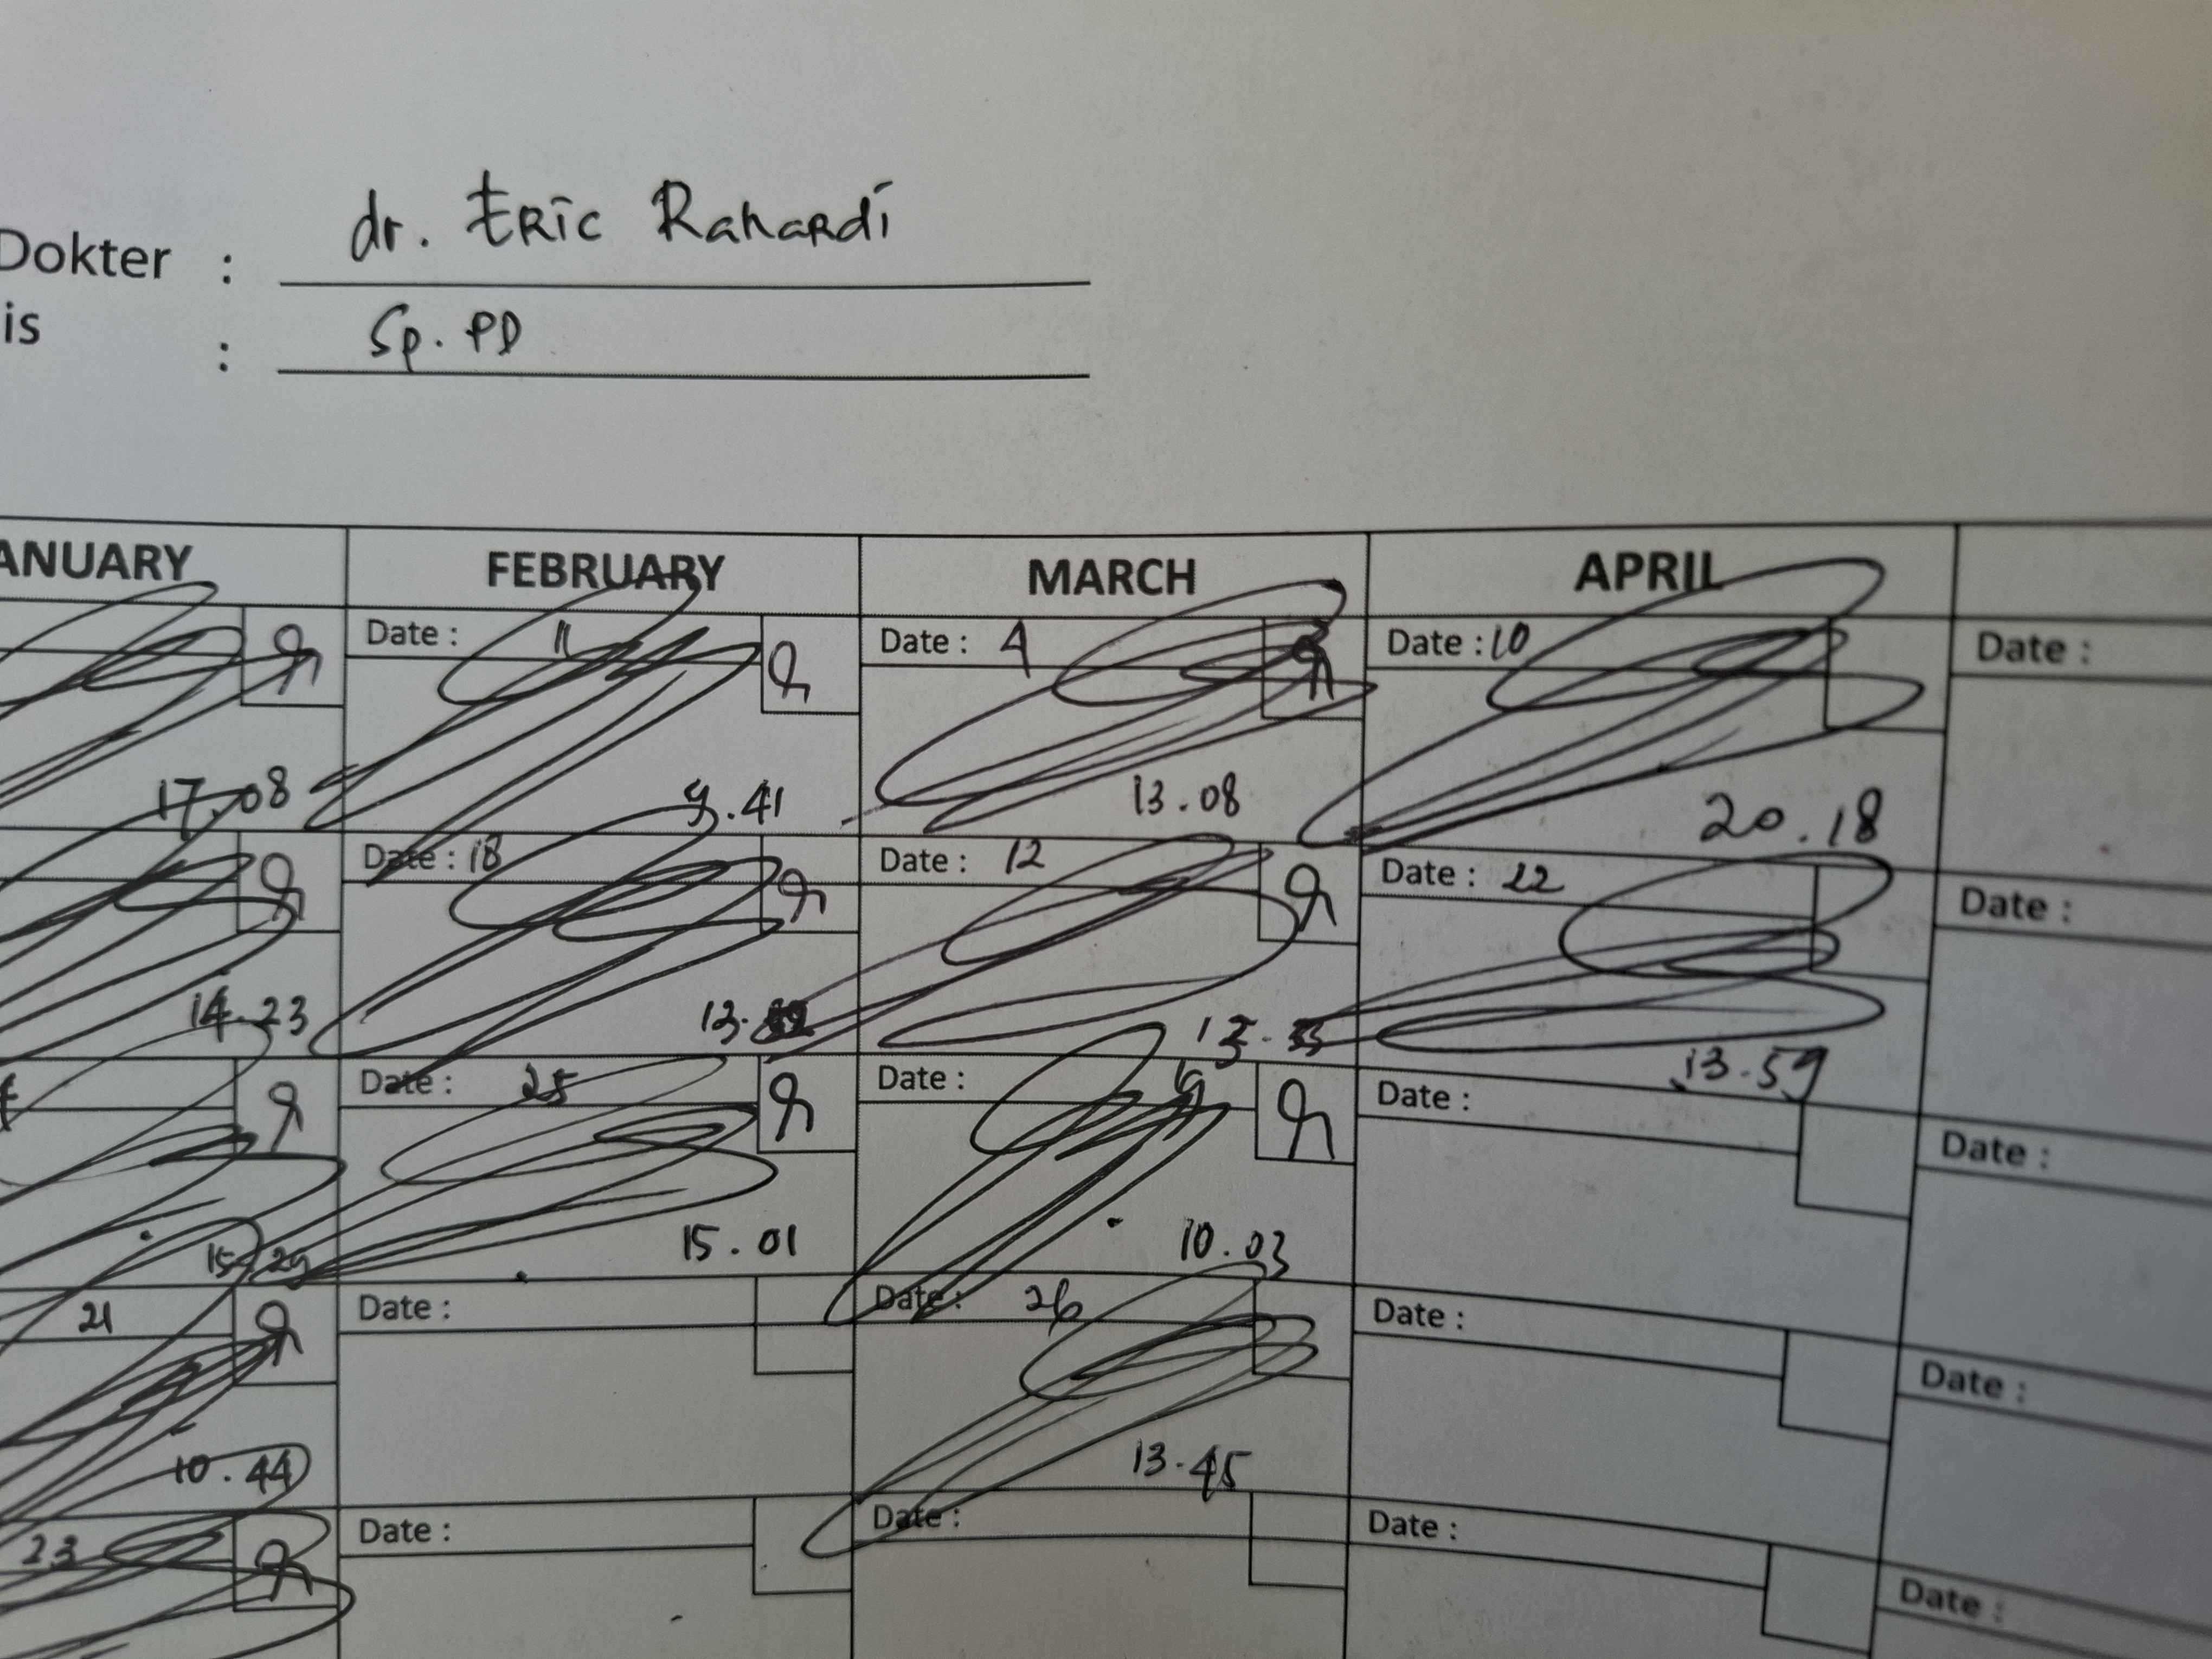 Dokter : dr. ERic Rahardi
is : Sp. PD
ANUARY FEBRUARY MARCH APRIL
Date : 11 Date : 4 Date : 10 Date :
17.08 9.41 13.08 20.18
Date : 18 Date : 12 Date : 22 Date :
14.23 13. 13. 13.59
Date : 25 Date : Date : Date :
15.29 15.01 10.03
21 Date : Date : 26 Date : Date :
10.44 13.45
23 Date : Date : Date : Date :